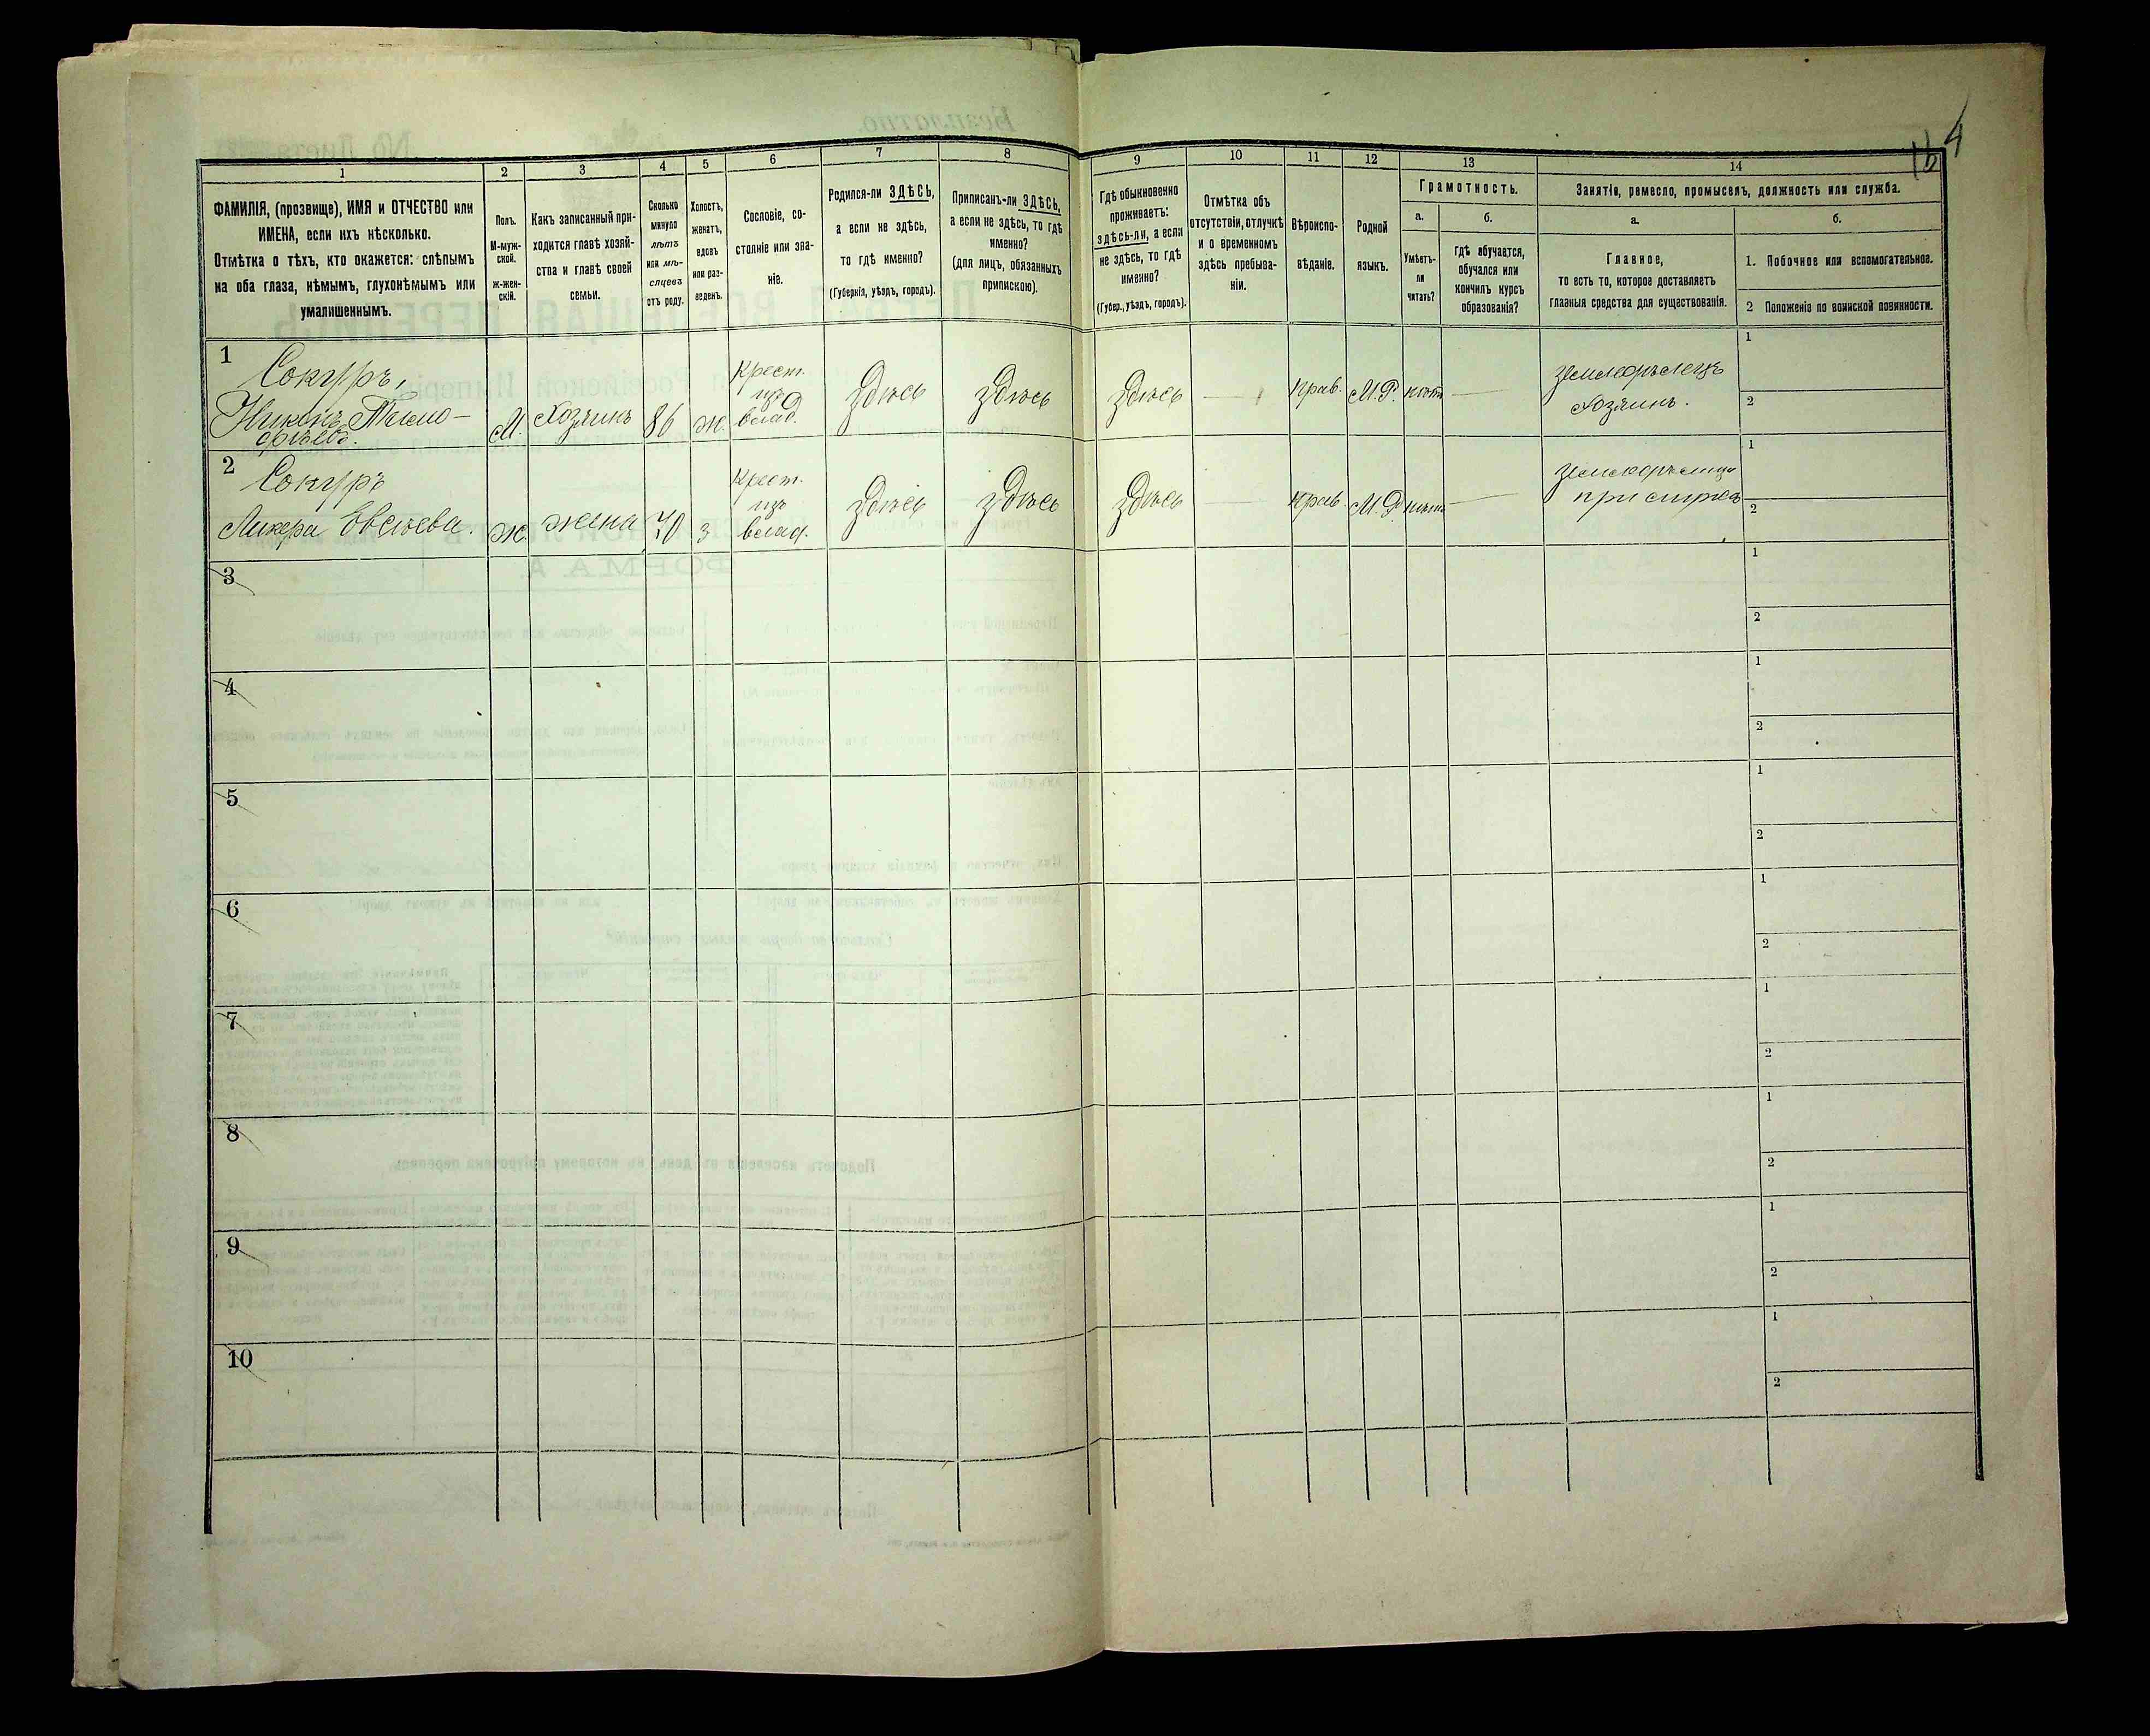 16 4
1 2 3 4 5 6 7 8 9 10 11 12 13 14
ФАМИЛІЯ, (прозвище), ИМЯ и ОТЧЕСТВО или
ИМЕНА, если ихъ нѣсколько.
Отмѣтка о тѣхъ, кто окажется: слѣпымъ
на оба глаза, нѣмымъ, глухонѣмымъ или
умалишеннымъ.
Полъ.
М-муж-
ской.
ж-жен-
скій.
Какъ записанный при-
ходится главѣ хозяй-
ства и главѣ своей
семьи.
Сколько
минуло
лѣтъ
или мѣ-
сяцевъ
отъ роду.
Холостъ,
женатъ,
вдовъ
или раз-
веденъ.
Сословіе, со-
стояніе или зва-
ніе.
Родился-ли ЗДѢСЬ,
а если не здѣсь,
то гдѣ именно?
(Губернія, уѣздъ, городъ).
Приписанъ-ли ЗДѢСЬ,
а если не здѣсь, то гдѣ
именно?
(для лицъ, обязанныхъ
припискою).
Гдѣ обыкновенно
проживаетъ:
здѣсь-ли, а если
не здѣсь, то гдѣ
именно?
(Губер., уѣздъ, городъ).
Отмѣтка объ
отсутствіи, отлучкѣ
и о временномъ
здѣсь пребыва-
ніи.
Вѣроиспо-
вѣданіе.
Родной
языкъ.
Грамотность.
а. б.
Умѣетъ-
ли
читать?
Гдѣ обучается,
обучался или
кончилъ курсъ
образованія?
Занятіе, ремесло, промыселъ, должность или служба.
а. б.
Главное,
то есть то, которое доставляетъ
главныя средства для существованія.
1. Побочное или вспомогательное.
2 Положеніе по воинской повинности.
1
Сокуръ,
Никонъ Тимо-
фѣевъ.
М.
Хозяинъ
86
ж.
Крест.
изъ
влад.
Здѣсь
Здѣсь
Здѣсь
—
Прав.
М.Р.
нѣтъ
—
Земледѣлецъ
Хозяинъ.
1
2
2
Сокуръ
Ликера Евсѣева.
ж.
жена
70
з
Крест.
изъ
влад.
Здѣсь
Здѣсь
Здѣсь
—
Прав.
М.Р.
нѣтъ
—
Земледѣлица
при мужѣ
1
2
3
1
2
4
1
2
5
1
2
6
1
2
7
1
2
8
1
2
9
1
2
10
1
2